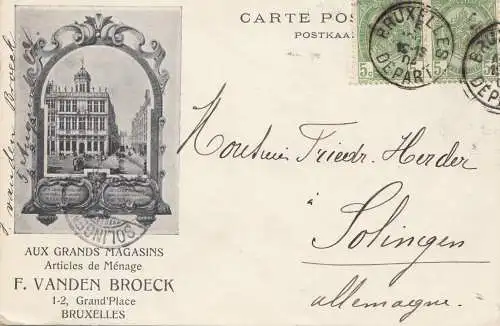 CARTE POS
POSTKAA
BRUXELLES
DEPART
5c
5c
BRU
DEPA
Monsieur Friedr. Herder
Solingen
allemagne.
SOLINGEN
F. Vanden Broeck
AUX GRANDS MAGASINS
Articles de Ménage
F. VANDEN BROECK
1-2, Grand'Place
BRUXELLES